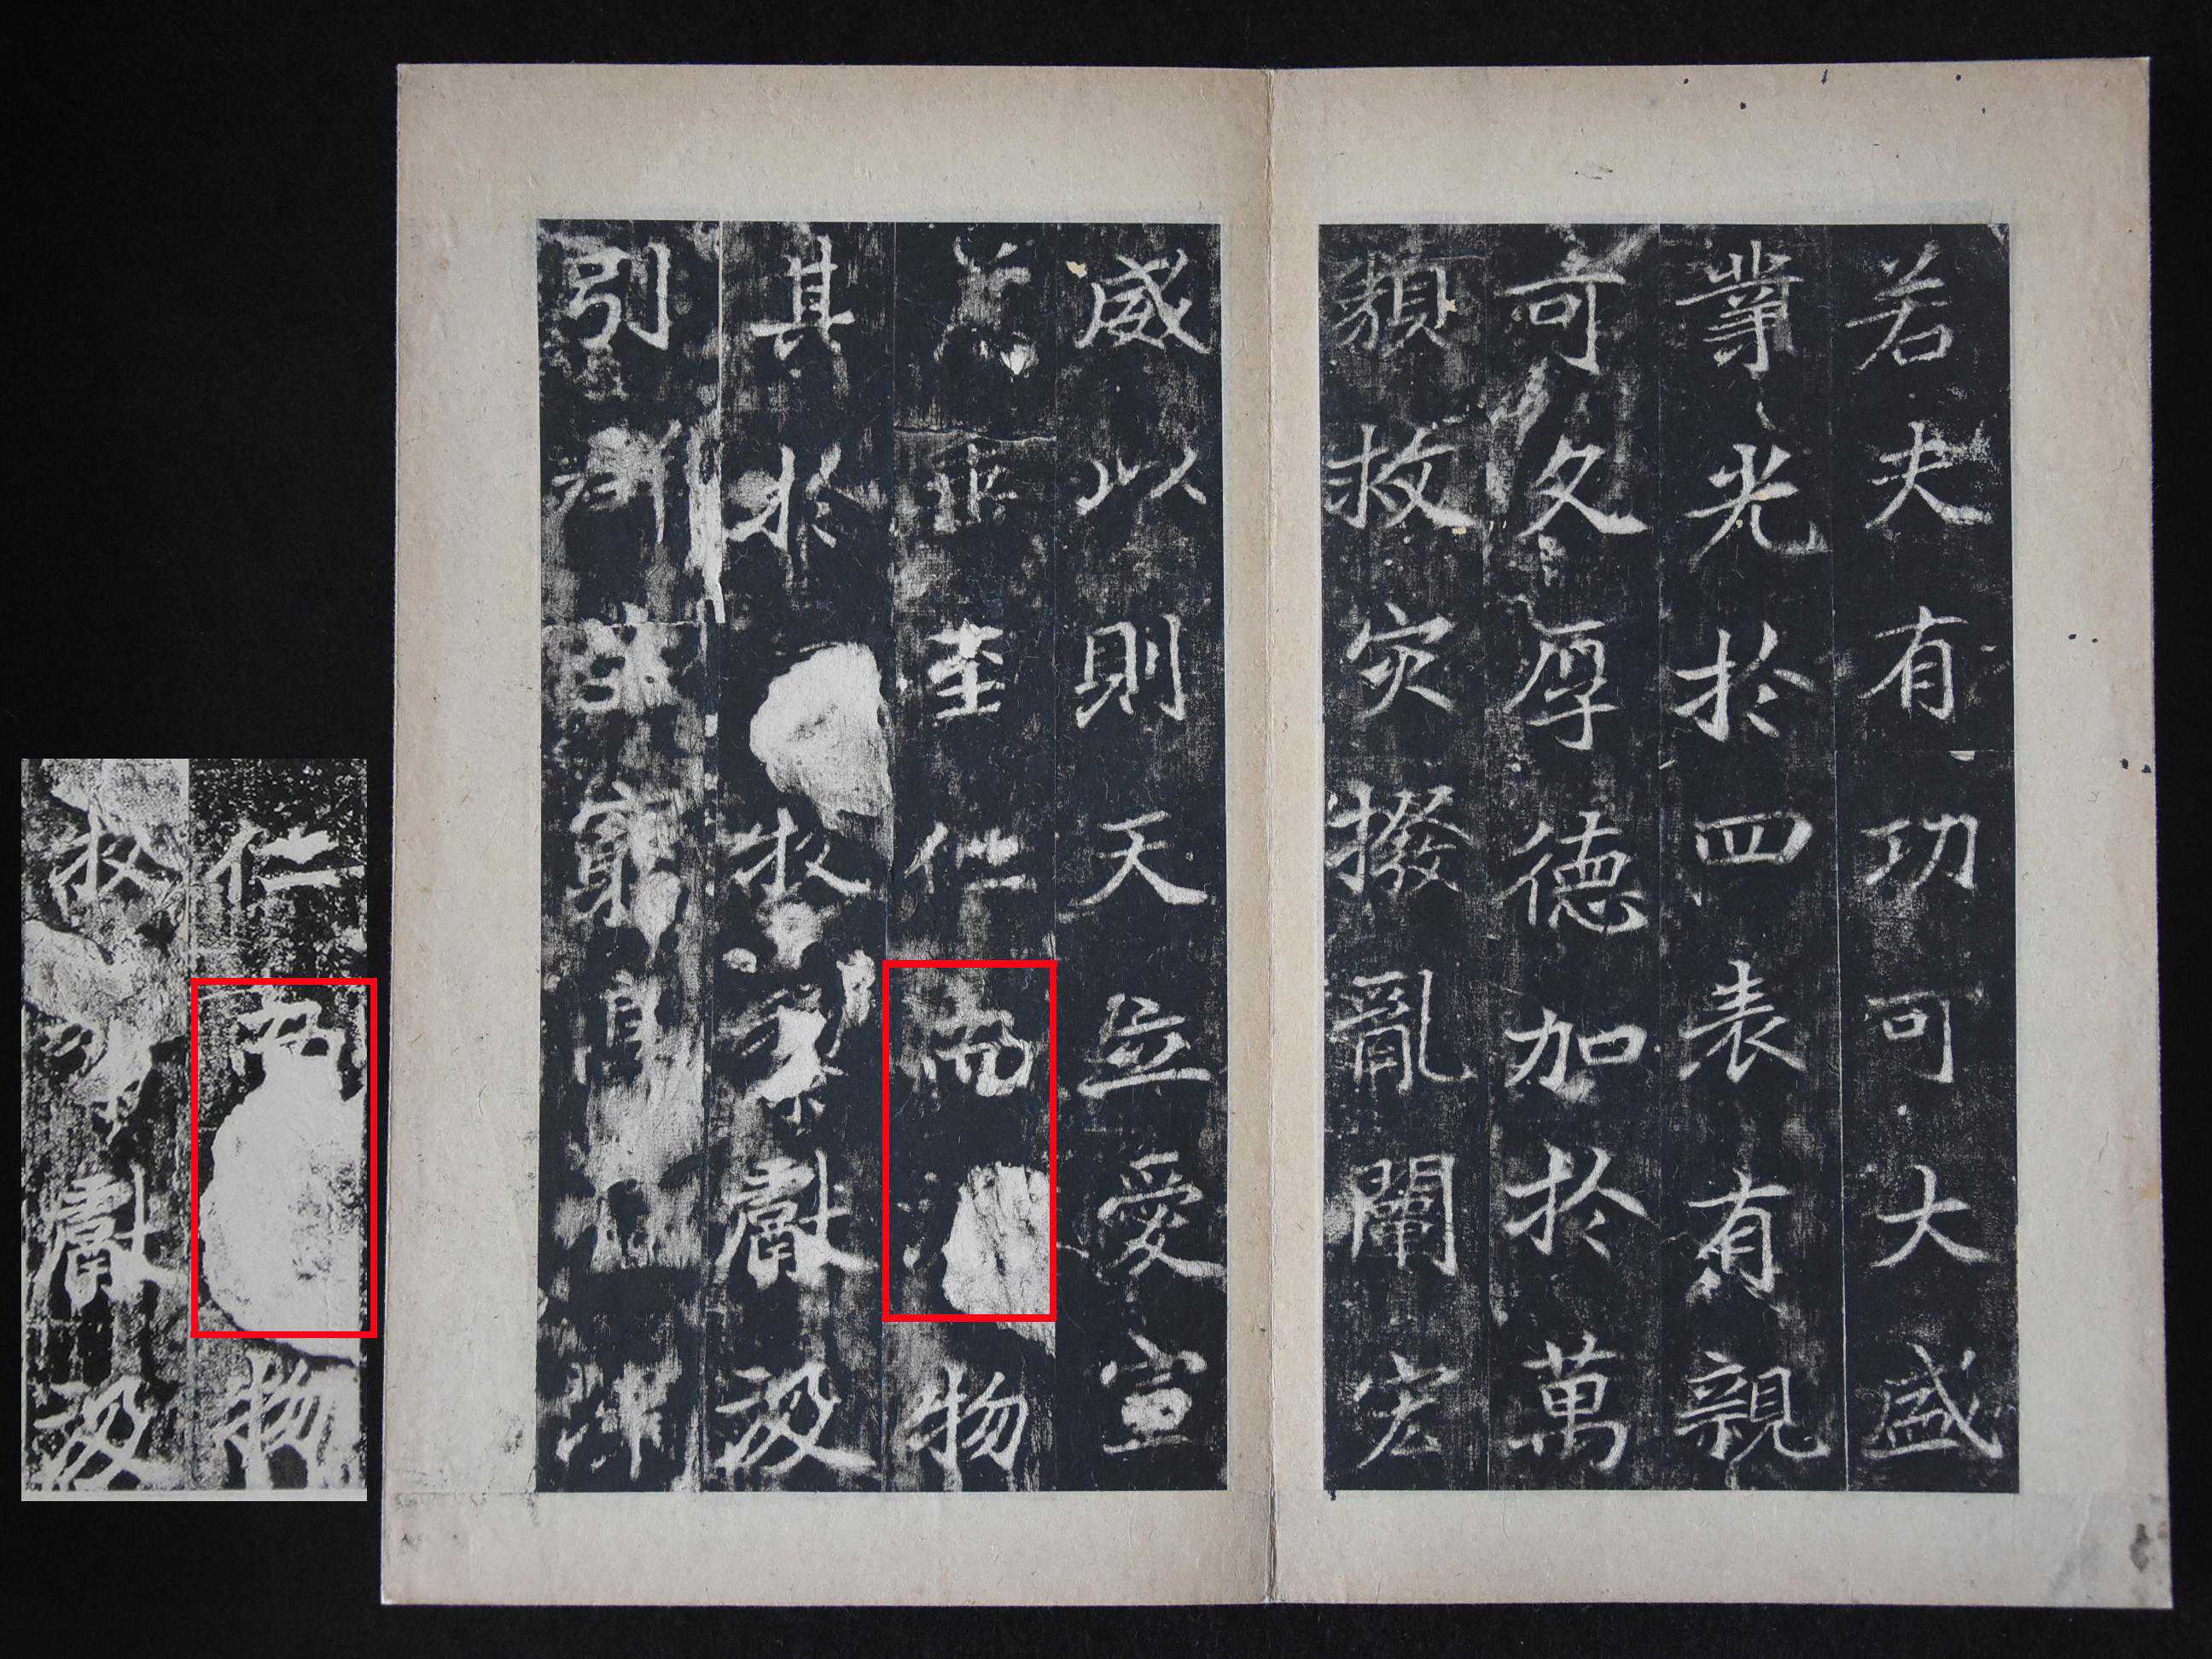 若夫有功可大盛
業光於四表有親
可久厚德加於萬
類救灾撥亂闡宏
威以則天立愛宣
垂至仁而物
其於獻
引窮
仁而物
獻